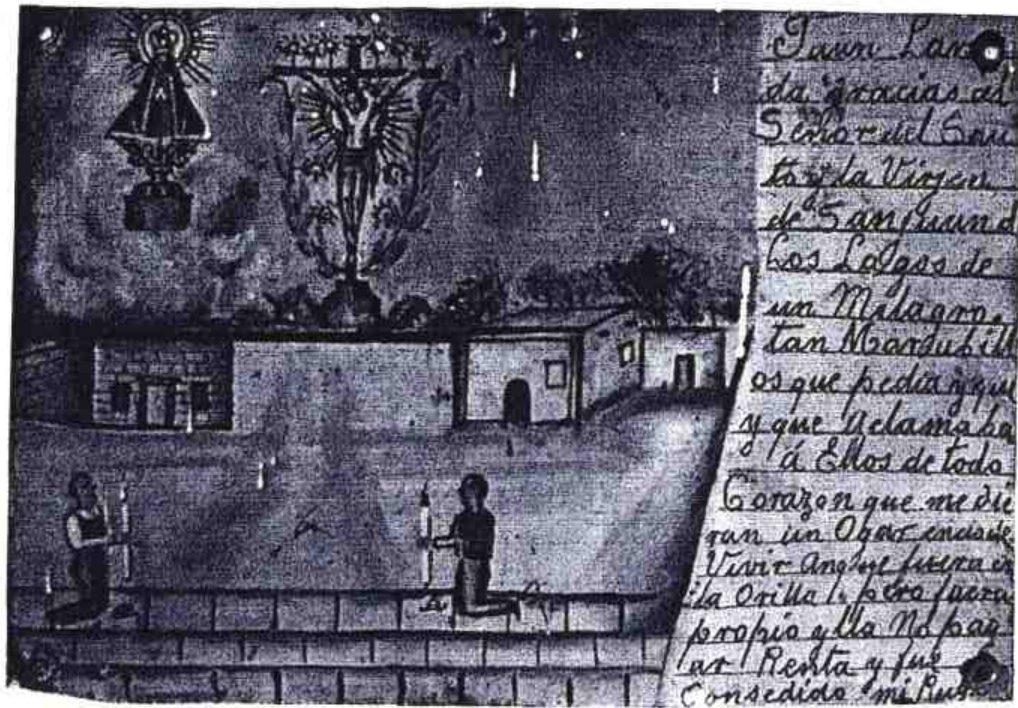 da gracias al
Señor del Sau
to y la Virjen
de Sanjuand
Los Lagos de
un Milagro.
tan Marabill
os que pedia y que
y que aclamaba
á Ellos de todo
Corazon que me die
ran un Ogar
Vivir Anque fuera en
la Orilla pero fuera
propio y lla No pag
ar Renta y fue
Consedido mi